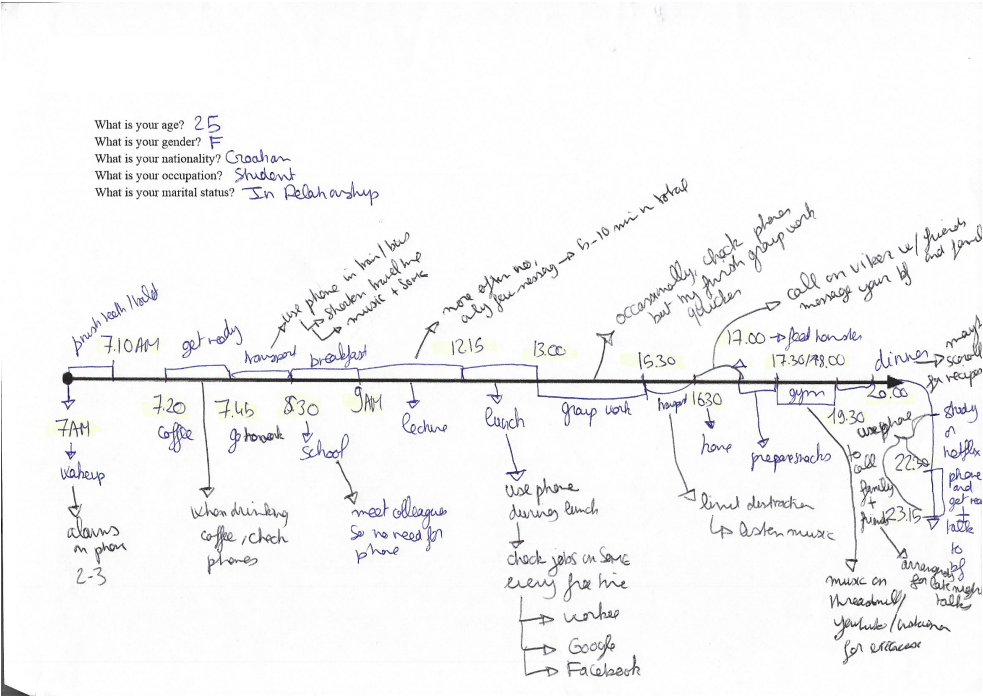 What is your age? 25
What is your gender? F
What is your nationality? Croatian
What is your occupation? Student
What is your marital status? In Relationship
brush teeth/toilet
7.10 AM
get ready
transport
breakfast
use phone in train/bus
shorten travel time
music + Some
more often no,
only few messages → 5-10 min in total
12.15
13.00
occassionally, check phones
but try finish group work
quicker
15.30
call on viber w/ friends
and
message your bf
17.00 → feed hamster
17.30/18.00
dinner
scroll
for recipes
7AM
wakeup
alarms
on phone
2-3
7.20
coffee
when drinking
coffee, check
phones
7.45
go to work
8.30
school
9AM
meet colleagues
so no need for
phone
lecture
lunch
use phone
during lunch
check jobs on Some
every free time
workee
Google
Facebook
group work
transport
limit distraction
listen music
1630
home
prepare snacks
gym
19.30
music on
threadmill/
for exercise
20.00
use phone
to
call
family
+
friends
22.30
23.15
for late night
talks
study
or
netflix
phone
and
talk
to
bf